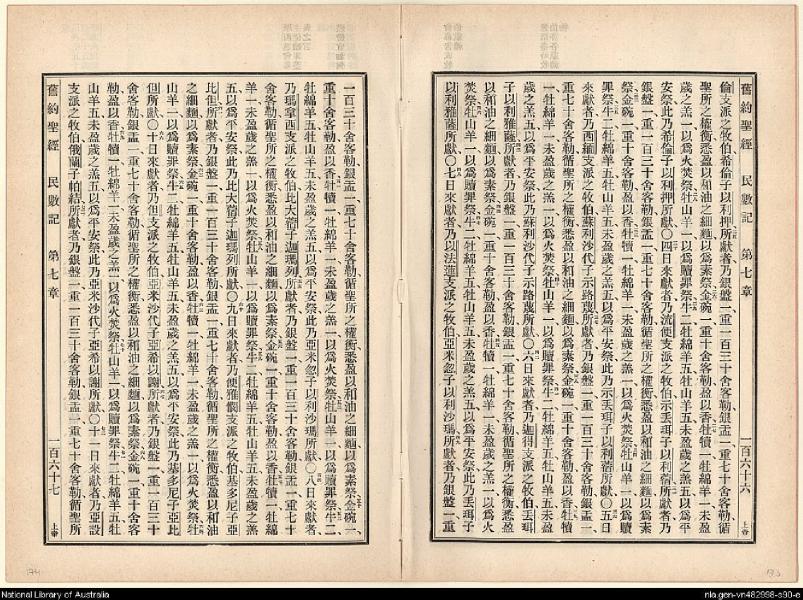 舊約聖經 民數記 第七章 一百六十六 上帝
倫支派之牧伯希倫子以利押所獻者乃銀盤一重一百三十舍客勒銀盂一重七十舍客勒循
聖所之權衡悉盈以和油之細麵以爲素祭金碗一重十舍客勒盈以香牡犢一牡綿羊一未盈
歲之羔一以爲火焚祭牡山羊一以爲贖罪祭牛二牡綿羊五牡山羊五未盈歲之羔五以爲平
安祭此乃希倫子以利押所獻〇四日來獻者乃流便支派之牧伯示丟珥子以利蓿所獻者乃
銀盤一重一百三十舍客勒銀盂一重七十舍客勒循聖所之權衡悉盈以和油之細麵以爲素
祭金碗一重十舍客勒盈以香牡犢一牡綿羊一未盈歲之羔一以爲火焚祭牡山羊一以爲贖
罪祭牛二牡綿羊五牡山羊五未盈歲之羔五以爲平安祭此乃示丟珥子以利蓿所獻〇五日
來獻者乃西緬支派之牧伯蘇利沙代子示路蔑所獻者乃銀盤一重一百三十舍客勒銀盂一
重七十舍客勒循聖所之權衡悉盈以和油之細麵以爲素祭金碗一重十舍客勒盈以香牡犢
一牡綿羊一未盈歲之羔一以爲火焚祭牡山羊一以爲贖罪祭牛二牡綿羊五牡山羊五未盈
歲之羔五以爲平安祭此乃蘇利沙代子示路蔑所獻〇六日來獻者乃迦得支派之牧伯丟珥
子以利雅薩所獻者乃銀盤一重一百三十舍客勒銀盂一重七十舍客勒循聖所之權衡悉盈
以和油之細麵以爲素祭金碗一重十舍客勒盈以香牡犢一牡綿羊一未盈歲之羔一以爲火
焚祭牡山羊一以爲贖罪祭牛二牡綿羊五牡山羊五未盈歲之羔五以爲平安祭此乃丟珥子
以利雅薩所獻〇七日來獻者乃以法蓮支派之牧伯亞米忽子以利沙瑪所獻者乃銀盤一重
一百三十舍客勒銀盂一重七十舍客勒循聖所之權衡悉盈以和油之細麵以爲素祭金碗一
重十舍客勒盈以香牡犢一牡綿羊一未盈歲之羔一以爲火焚祭牡山羊一以爲贖罪祭牛二
牡綿羊五牡山羊五未盈歲之羔五以爲平安祭此乃亞米忽子以利沙瑪所獻〇八日來獻者
乃瑪拿西支派之牧伯比大蓿子迦瑪列所獻者乃銀盤一重一百三十舍客勒銀盂一重七十
舍客勒循聖所之權衡悉盈以和油之細麵以爲素祭金碗一重十舍客勒盈以香牡犢一牡綿
羊一未盈歲之羔一以爲火焚祭牡山羊一以爲贖罪祭牛二牡綿羊五牡山羊五未盈歲之羔
五以爲平安祭此乃比大蓿子迦瑪列所獻〇九日來獻者乃便雅憫支派之牧伯基多尼子亞
比但所獻者乃銀盤一重一百三十舍客勒銀盂一重七十舍客勒循聖所之權衡悉盈以和油
之細麵以爲素祭金碗一重十舍客勒盈以香牡犢一牡綿羊一未盈歲之羔一以爲火焚祭牡
山羊一以爲贖罪祭牛二牡綿羊五牡山羊五未盈歲之羔五以爲平安祭此乃基多尼子亞比
但所獻〇十日來獻者乃但支派之牧伯亞米沙代子亞希以謝所獻者乃銀盤一重一百三十
舍客勒銀盂一重七十舍客勒循聖所之權衡悉盈以和油之細麵以爲素祭金碗一重十舍客
勒盈以香牡犢一牡綿羊一未盈歲之羔一以爲火焚祭牡山羊一以爲贖罪祭牛二牡綿羊五牡
山羊五未盈歲之羔五以爲平安祭此乃亞米沙代子亞希以謝所獻〇十一日來獻者乃亞設
支派之牧伯俄蘭子帕結所獻者乃銀盤一重一百三十舍客勒銀盂一重七十舍客勒循聖所
舊約聖經 民數記 第七章 一百六十七 上帝
National Library of Australia
nla.gen-vn482998-s90-e